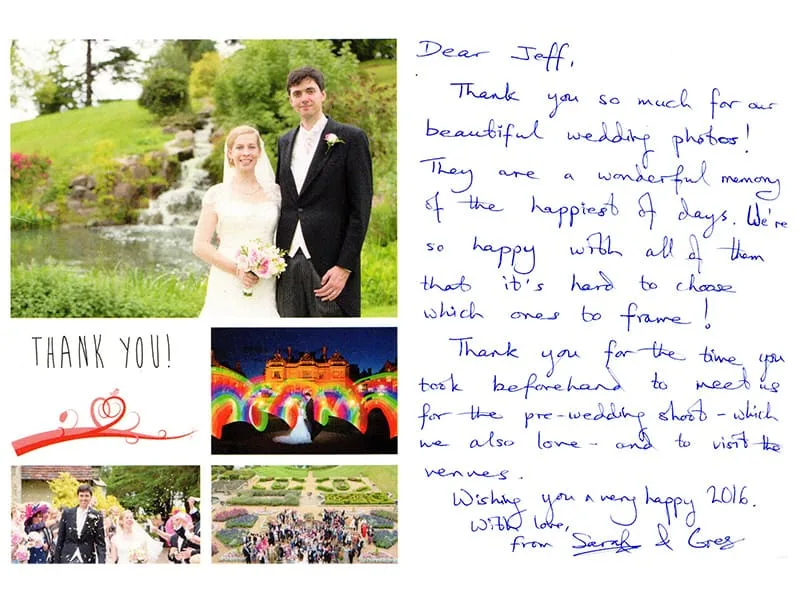 THANK YOU!
Dear Jeff,
Thank you so much for our
beautiful wedding photos!
They are a wonderful memory
of the happiest of days. We're
so happy with all of them
that it's hard to choose
which ones to frame!
Thank you for the time you
took beforehand to meet us
for the pre-wedding shoot - which
we also love - and to visit the
venues.
Wishing you a very happy 2016.
With love,
from Sarah & Greg